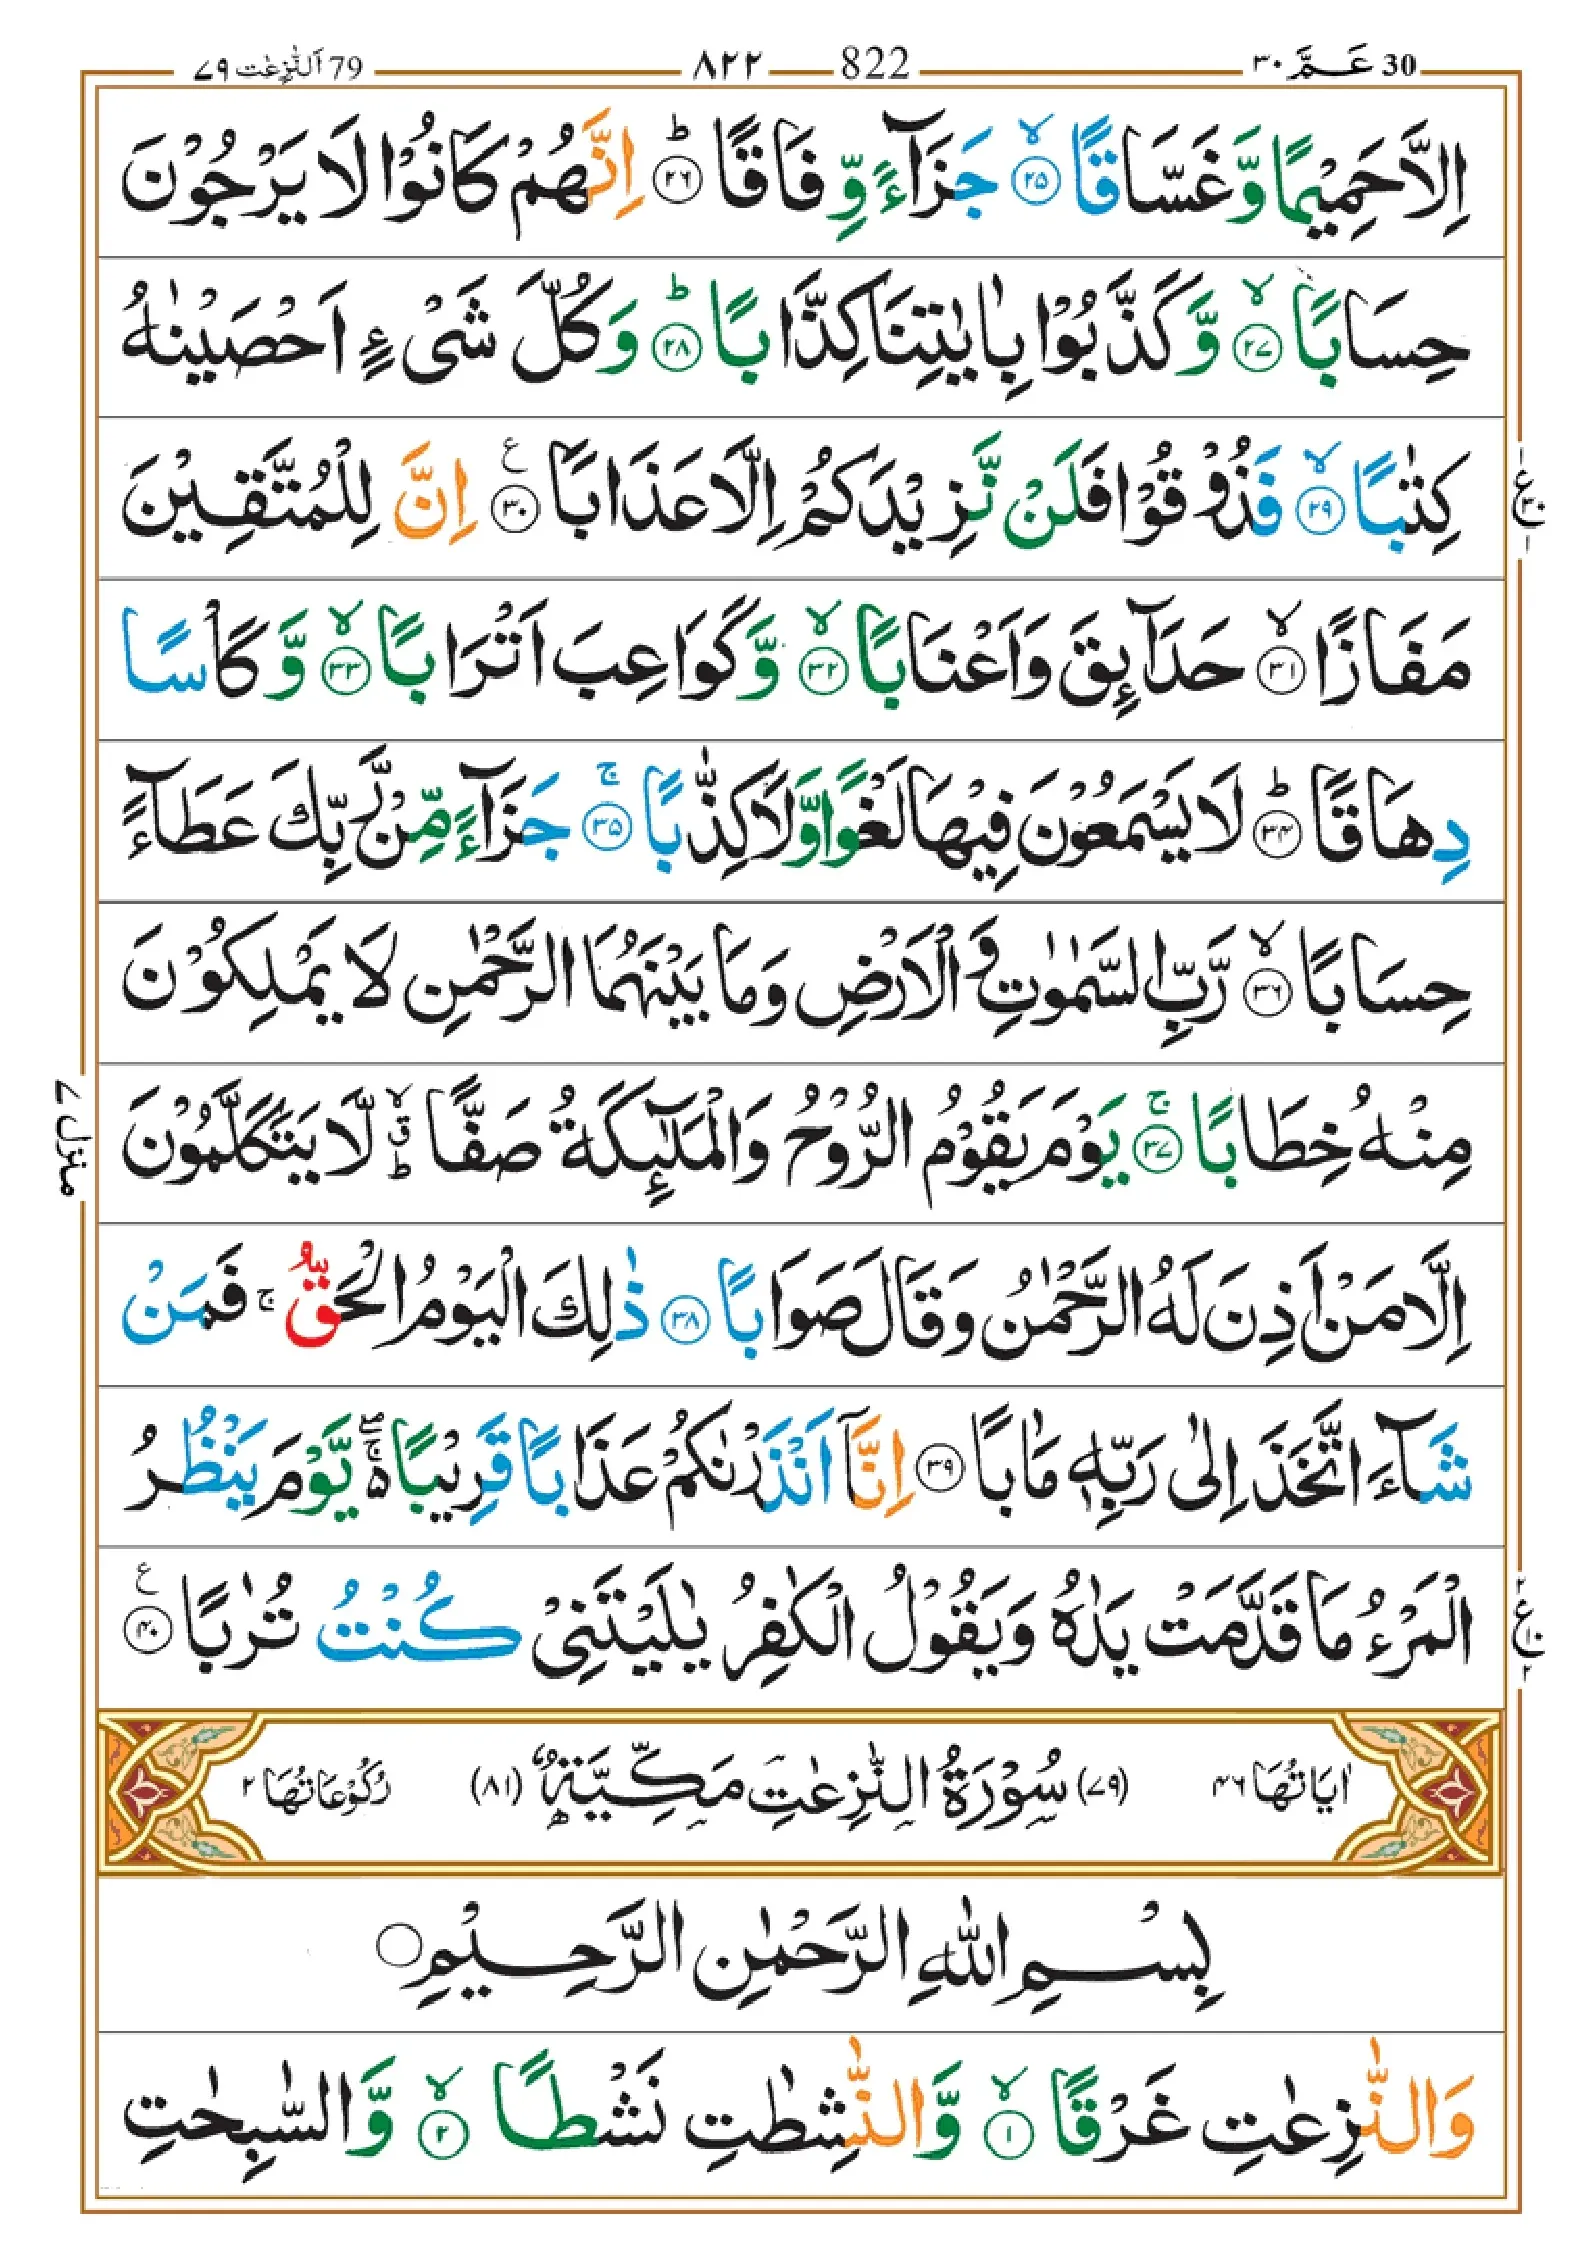 30 عَمَّ ٣٠
822 ٨٢٢
79 اَلنّٰزِعٰت ٧٩
اِلَّا حَمِيْمًا وَّغَسَّاقًا ۙ‏﴿۲۵﴾ جَزَآءً وِّفَاقًا ؕ‏﴿۲۶﴾ اِنَّهُمْ كَانُوْا لَا يَرْجُوْنَ
حِسَابًا ۙ‏﴿۲۷﴾ وَّكَذَّبُوْا بِاٰيٰتِنَا كِذَّابًا ؕ‏﴿۲۸﴾ وَكُلَّ شَىْءٍ اَحْصَيْنٰهُ
كِتٰبًا ۙ‏﴿۲۹﴾ فَذُوْقُوْا فَلَنْ نَّزِيْدَكُمْ اِلَّا عَذَابًا ﴿۳۰﴾ع اِنَّ لِلْمُتَّقِيْنَ
مَفَازًا ۙ‏﴿۳۱﴾ حَدَآئِقَ وَاَعْنَابًا ۙ‏﴿۳۲﴾ وَّكَوَاعِبَ اَتْرَابًا ۙ‏﴿۳۳﴾ وَّكَاْسًا
دِهَاقًا ؕ‏﴿۳۴﴾ لَا يَسْمَعُوْنَ فِيْهَا لَغْوًا وَّلَا كِذّٰبًا ۚ‏﴿۳۵﴾ جَزَآءً مِّنْ رَّبِّكَ عَطَآءً
حِسَابًا ۙ‏﴿۳۶﴾ رَّبِّ السَّمٰوٰتِ وَالْاَرْضِ وَمَا بَيْنَهُمَا الرَّحْمٰنِ لَا يَمْلِكُوْنَ
مِنْهُ خِطَابًا ۚ‏﴿۳۷﴾ يَوْمَ يَقُوْمُ الرُّوْحُ وَالْمَلٰٓئِكَةُ صَفًّا ۙق ؕ لَّا يَتَكَلَّمُوْنَ
اِلَّا مَنْ اَذِنَ لَهُ الرَّحْمٰنُ وَقَالَ صَوَابًا ﴿۳۸﴾ ذٰلِكَ الْيَوْمُ الْحَقُّ ۚ فَمَنْ
شَآءَ اتَّخَذَ اِلٰى رَبِّهٖ مَاٰبًا ﴿۳۹﴾ اِنَّاۤ اَنْذَرْنٰكُمْ عَذَابًا قَرِيْبًا ۵ۖۚ يَّوْمَ يَنْظُرُ
الْمَرْءُ مَا قَدَّمَتْ يَدٰهُ وَيَقُوْلُ الْكٰفِرُ يٰلَيْتَنِىْ كُنْتُ تُرٰبًا ﴿۴۰﴾ع
اٰيَاتُهَا ۴۶ (۷۹) سُوْرَةُ النّٰزِعٰتِ مَكِّيَّةٌ (۸۱) رُكُوْعَاتُهَا ۲
بِسْمِ اللّٰهِ الرَّحْمٰنِ الرَّحِيْمِ
وَالنّٰزِعٰتِ غَرْقًا ۙ‏﴿۱﴾ وَّالنّٰشِطٰتِ نَشْطًا ۙ‏﴿۲﴾ وَّالسّٰبِحٰتِ
منزل ۷